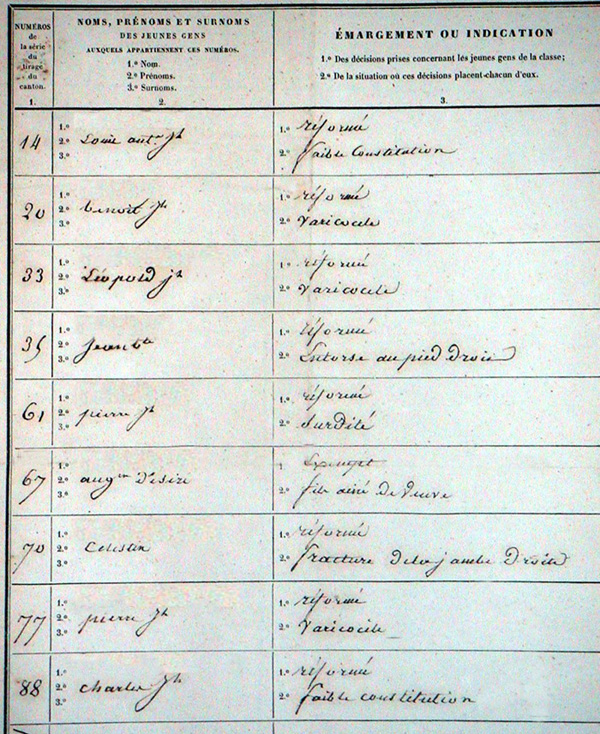 NUMÉROS
de
la série
du
tirage
du
canton.
1.
NOMS, PRÉNOMS ET SURNOMS
DES JEUNES GENS
AUXQUELS APPARTIENNENT CES NUMÉROS.
1.º Nom.
2.º Prénoms.
3.º Surnoms.
2.
ÉMARGEMENT OU INDICATION
1.º Des décisions prises concernant les jeunes gens de la classe;
2.º De la situation où ces décisions placent chacun d'eux.
3.
14
1.º
2.º Louis antne jh
3.º
1.º réformé
2.º faible Constitution
20
1.º
2.º benoît jh
3.º
1.º réformé
2.º Varicocele
33
1.º
2.º Léopold jh
3.º
1.º réformé
2.º Varicocele
35
1.º
2.º Jean bte
3.º
1.º réformé
2.º Entorse au pied droit
61
1.º
2.º pierre jh
3.º
1.º réformé
2.º Surdité
67
1.º
2.º augtin Désiré
3.º
1 Exempt
2.º fils ainé de veuve
70
1.º
2.º Célestin
3.º
1.º réformé
2.º fracture de la jambe droite
77
1.º
2.º pierre jh
3.º
1.º réformé
2.º Varicocele
88
1.º
2.º charles jh
3.º
1.º réformé
2.º faible constitution